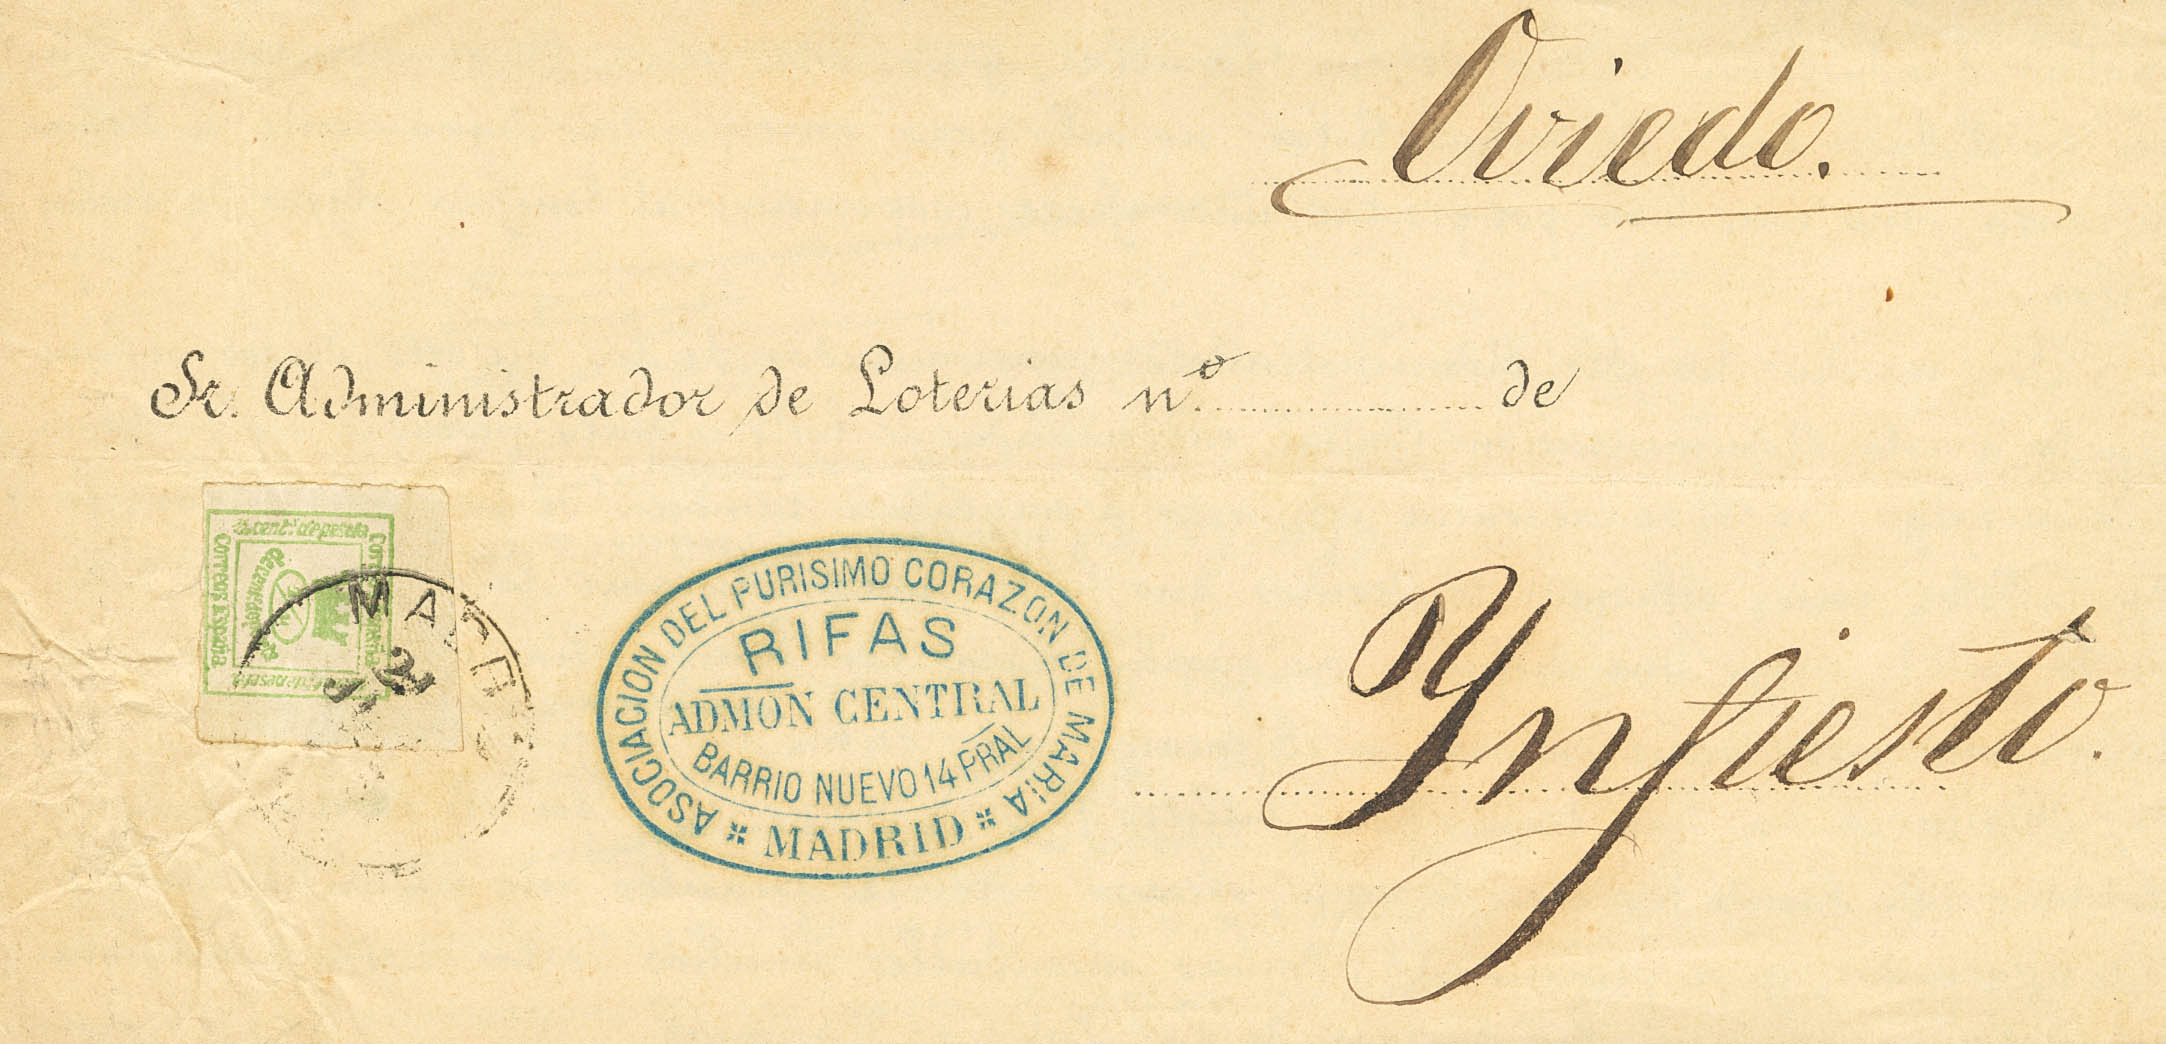 Oviedo.
Sr. Administrador de Loterias nº de
¼ cent.º de peseta
Correos España
MADR
ASOCIACION DEL PURISIMO CORAZON DE MARIA
RIFAS
ADMON CENTRAL
BARRIO NUEVO 14 PRAL
* MADRID *
Ynfiesto.